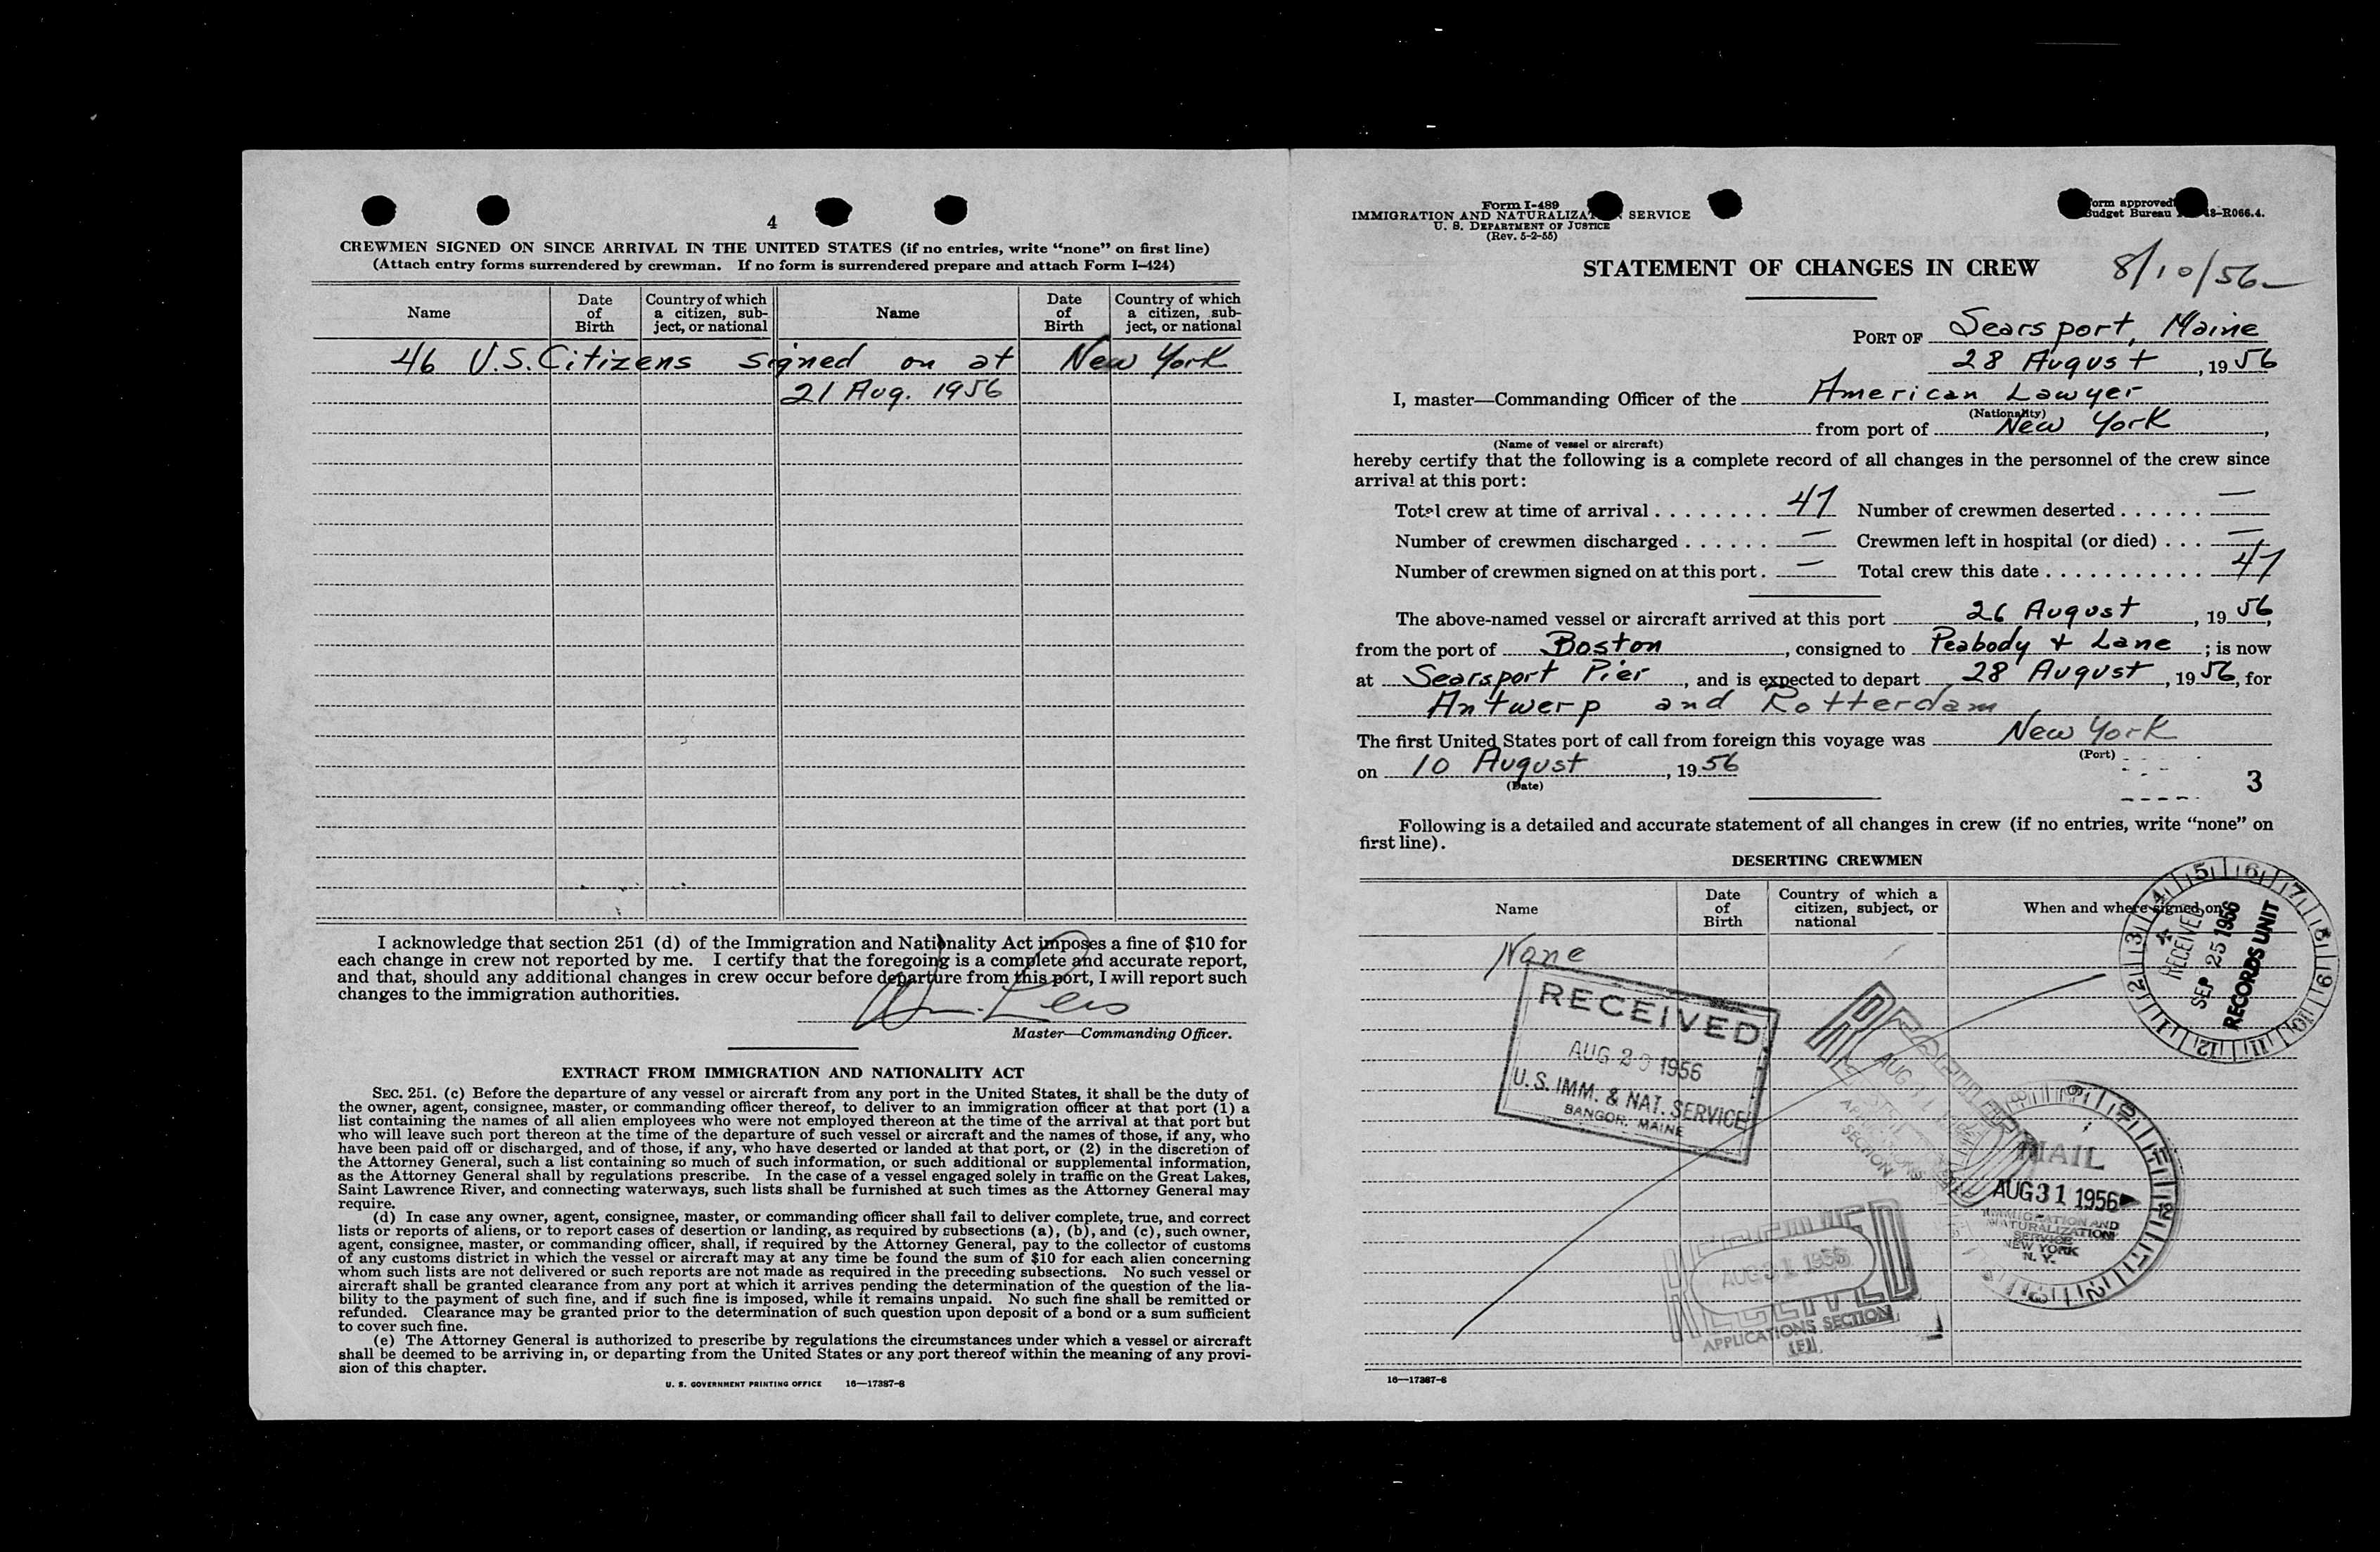 4
CREWMEN SIGNED ON SINCE ARRIVAL IN THE UNITED STATES (if no entries, write "none" on first line)
(Attach entry forms surrendered by crewman. If no form is surrendered prepare and attach Form I-424)
Name Date of Birth Country of which a citizen, subject, or national Name Date of Birth Country of which a citizen, subject, or national
46 U.S. Citizens signed on at New York
21 Aug. 1956
I acknowledge that section 251 (d) of the Immigration and Nationality Act imposes a fine of $10 for
each change in crew not reported by me. I certify that the foregoing is a complete and accurate report,
and that, should any additional changes in crew occur before departure from this port, I will report such
changes to the immigration authorities.
Master—Commanding Officer.
EXTRACT FROM IMMIGRATION AND NATIONALITY ACT
SEC. 251. (c) Before the departure of any vessel or aircraft from any port in the United States, it shall be the duty of
the owner, agent, consignee, master, or commanding officer thereof, to deliver to an immigration officer at that port (1) a
list containing the names of all alien employees who were not employed thereon at the time of the arrival at that port but
who will leave such port thereon at the time of the departure of such vessel or aircraft and the names of those, if any, who
have been paid off or discharged, and of those, if any, who have deserted or landed at that port, or (2) in the discretion of
the Attorney General, such a list containing so much of such information, or such additional or supplemental information,
as the Attorney General shall by regulations prescribe. In the case of a vessel engaged solely in traffic on the Great Lakes,
Saint Lawrence River, and connecting waterways, such lists shall be furnished at such times as the Attorney General may
require.
(d) In case any owner, agent, consignee, master, or commanding officer shall fail to deliver complete, true, and correct
lists or reports of aliens, or to report cases of desertion or landing, as required by subsections (a), (b), and (c), such owner,
agent, consignee, master, or commanding officer, shall, if required by the Attorney General, pay to the collector of customs
of any customs district in which the vessel or aircraft may at any time be found the sum of $10 for each alien concerning
whom such lists are not delivered or such reports are not made as required in the preceding subsections. No such vessel or
aircraft shall be granted clearance from any port at which it arrives pending the determination of the question of the lia-
bility to the payment of such fine, and if such fine is imposed, while it remains unpaid. No such fine shall be remitted or
refunded. Clearance may be granted prior to the determination of such question upon deposit of a bond or a sum sufficient
to cover such fine.
(e) The Attorney General is authorized to prescribe by regulations the circumstances under which a vessel or aircraft
shall be deemed to be arriving in, or departing from the United States or any port thereof within the meaning of any provi-
sion of this chapter.
U. S. GOVERNMENT PRINTING OFFICE 16—17387-8
Form I-489
IMMIGRATION AND NATURALIZA SERVICE
U. S. DEPARTMENT OF JUSTICE
(Rev. 5-2-55)
orm approved
Budget Bureau R066.4.
8/10/56
STATEMENT OF CHANGES IN CREW
PORT OF Searsport, Maine
28 August, 1956
I, master—Commanding Officer of the American Lawyer
(Nationality)
from port of New York,
(Name of vessel or aircraft)
hereby certify that the following is a complete record of all changes in the personnel of the crew since
arrival at this port:
Total crew at time of arrival ........ 47 Number of crewmen deserted ...... —
Number of crewmen discharged ...... — Crewmen left in hospital (or died) ... —
Number of crewmen signed on at this port . — Total crew this date ............ 47
The above-named vessel or aircraft arrived at this port 26 August, 1956,
from the port of Boston, consigned to Peabody & Lane; is now
at Searsport Pier, and is expected to depart 28 August, 1956, for
Antwerp and Rotterdam
The first United States port of call from foreign this voyage was New York
(Port)
on 10 August, 1956
(Date)
3
Following is a detailed and accurate statement of all changes in crew (if no entries, write "none" on
first line).
DESERTING CREWMEN
Name Date of Birth Country of which a citizen, subject, or national When and where signed on
None
RECEIVED
SEP 25 1956
RECORDS UNIT
RECEIVED
AUG 1956
U.S. IMM. & NAT. SERVICE
BANGOR, MAINE
AUG 31
SECTION
MAIL
AUG 31 1956
IMMIGRATION AND
NATURALIZATION
SERVICE
NEW YORK
N. Y.
AUG 31 1956
RECEIVED
APPLICATIONS SECTION
16—17387-8